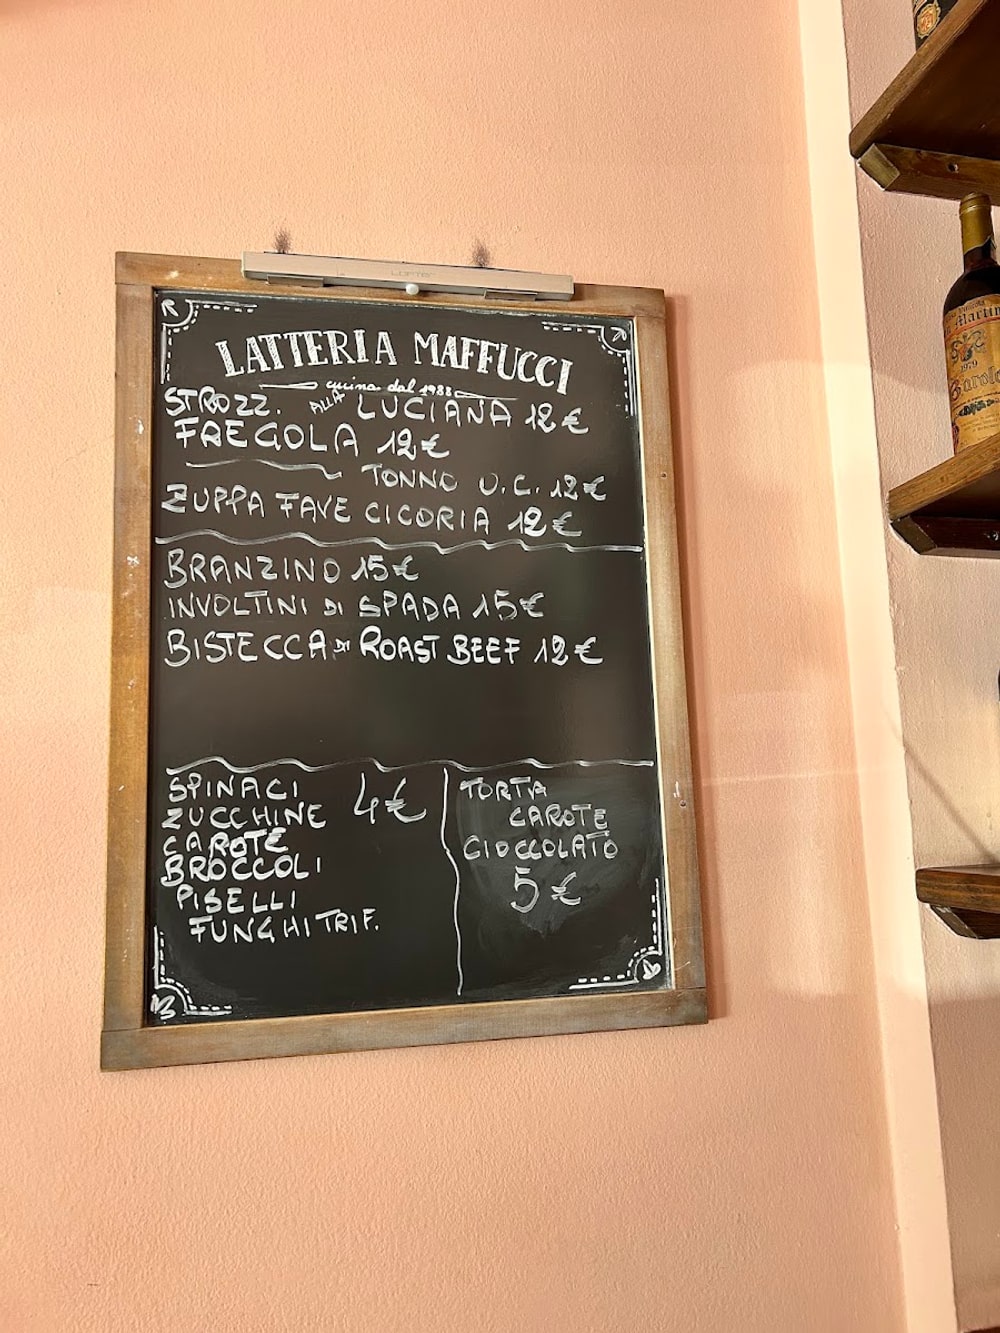 LATTERIA MAFFUCCI
cucina dal 1983
STROZZ. ALLA LUCIANA 12€
FREGOLA 12€
TONNO U.C. 12€
ZUPPA FAVE CICORIA 12€
BRANZINO 15€
INVOLTINI DI SPADA 15€
BISTECCA DI ROAST BEEF 12€
SPINACI 4€
ZUCCHINE
CAROTE
BROCCOLI
PISELLI
FUNGHI TRIF.
TORTA
CAROTE
CIOCCOLATO
5€
Martin
1979
Barolo